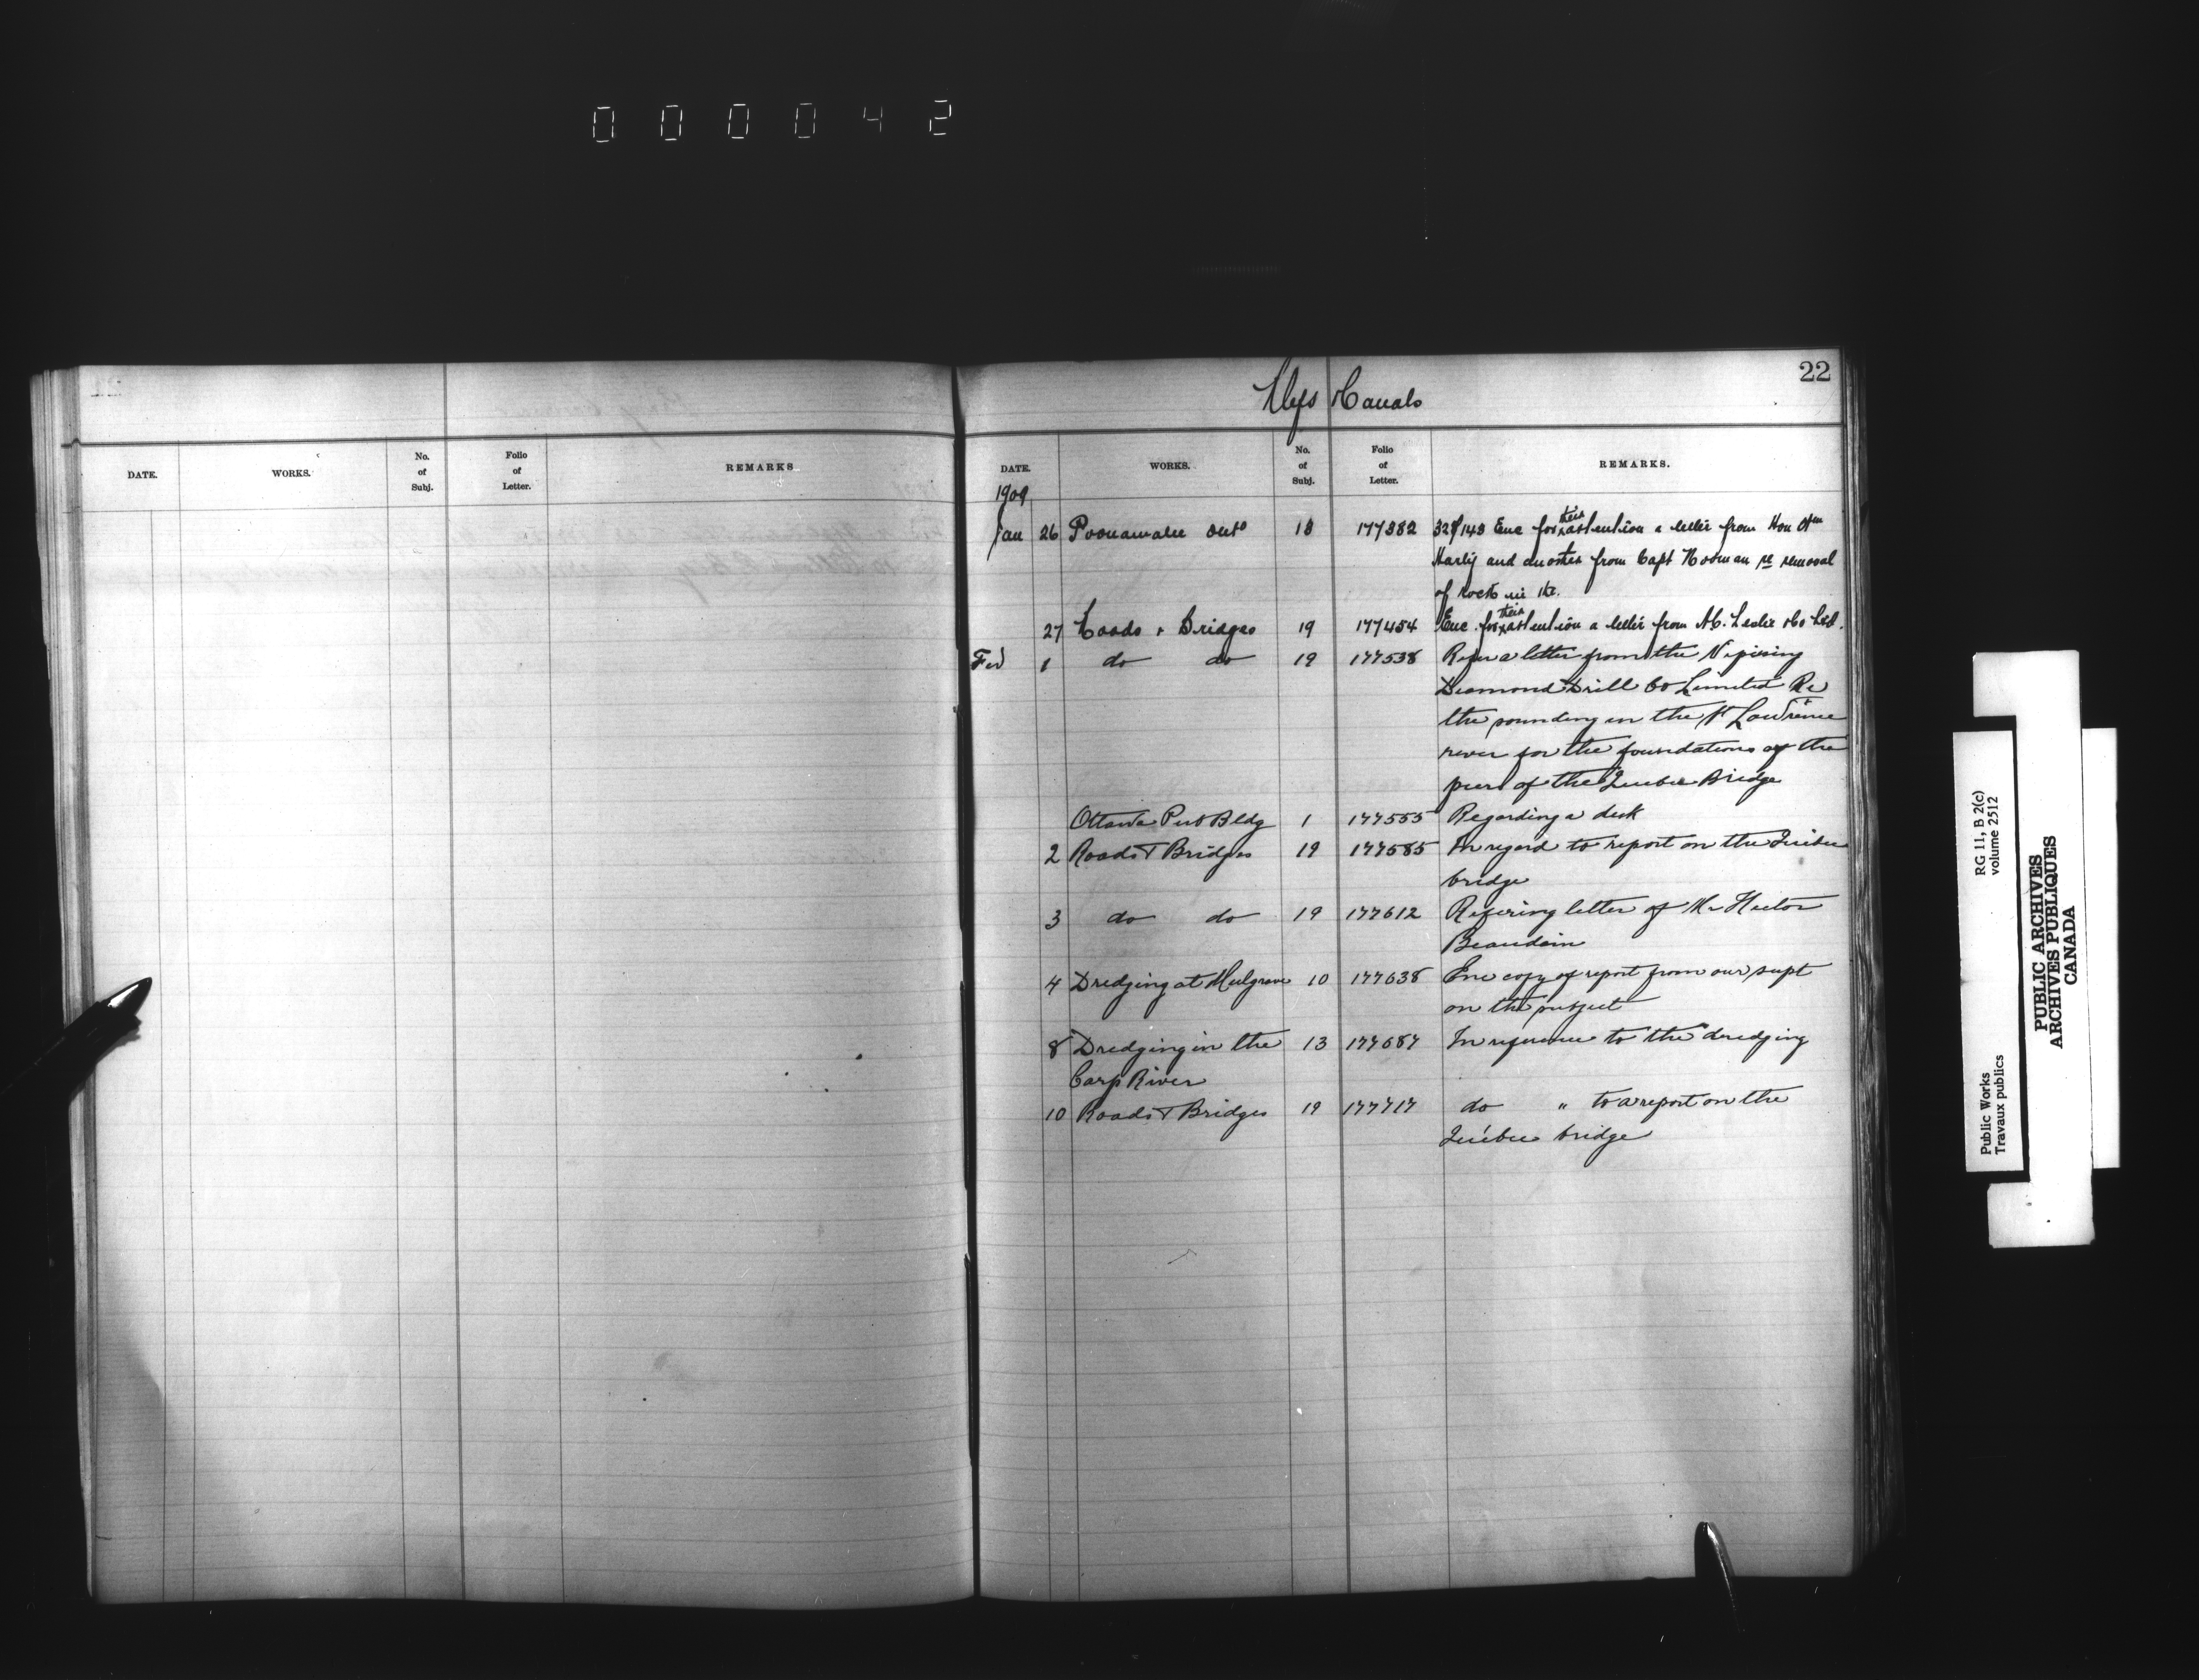 000042
22
Rlys & Canals
DATE. WORKS. No. of Subj. Folio of Letter. REMARKS
DATE. WORKS. No. of Subj. Folio of Letter. REMARKS.
1909
Jan 26 Poonamalee 18 177382 328/143 Enc for their attention a letter from Hon Wm
Harty and another from Capt Noonan re removal
of rock in the.
27 Roads & Bridges 19 177454 Enc. for their attention a letter from A.C. Leslie & Co Ltd.
Feb 1 do do 19 177538 Refer a letter from the Nipissing
Diamond Drill Co Limited Re
the sounding in the St Lawrence
river for the foundations of the
piers of the Quebec Bridge
Ottawa Pub Bldg 1 177555 Regarding a desk
2 Roads & Bridges 19 177585 In regard to report on the Quebec
bridge
3 do do 19 177612 Refering letter of Mr Hector
Beaudoin
4 Dredging at Mulgrave 10 177638 Enc copy of report from our supt
on the subject
8 Dredging in the 13 177687 In reference to the dredging
Carp River
10 Roads & Bridges 19 177717 do " to a report on the
Quebec bridge
Public Works
Travaux publics
RG 11, B 2(c)
volume 2512
PUBLIC ARCHIVES
ARCHIVES PUBLIQUES
CANADA